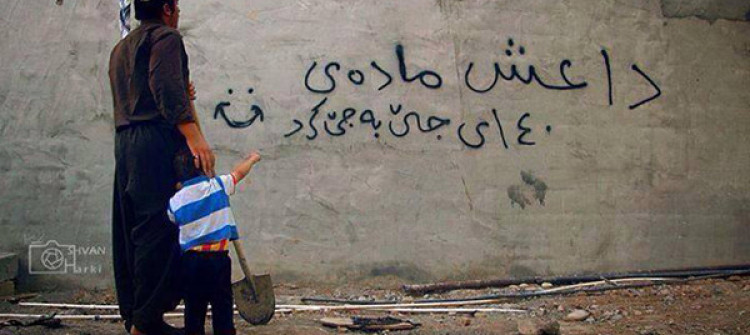 داعش ماددەی
١٤٠ای جێ بە جێ کرد
SHVAN
Harki